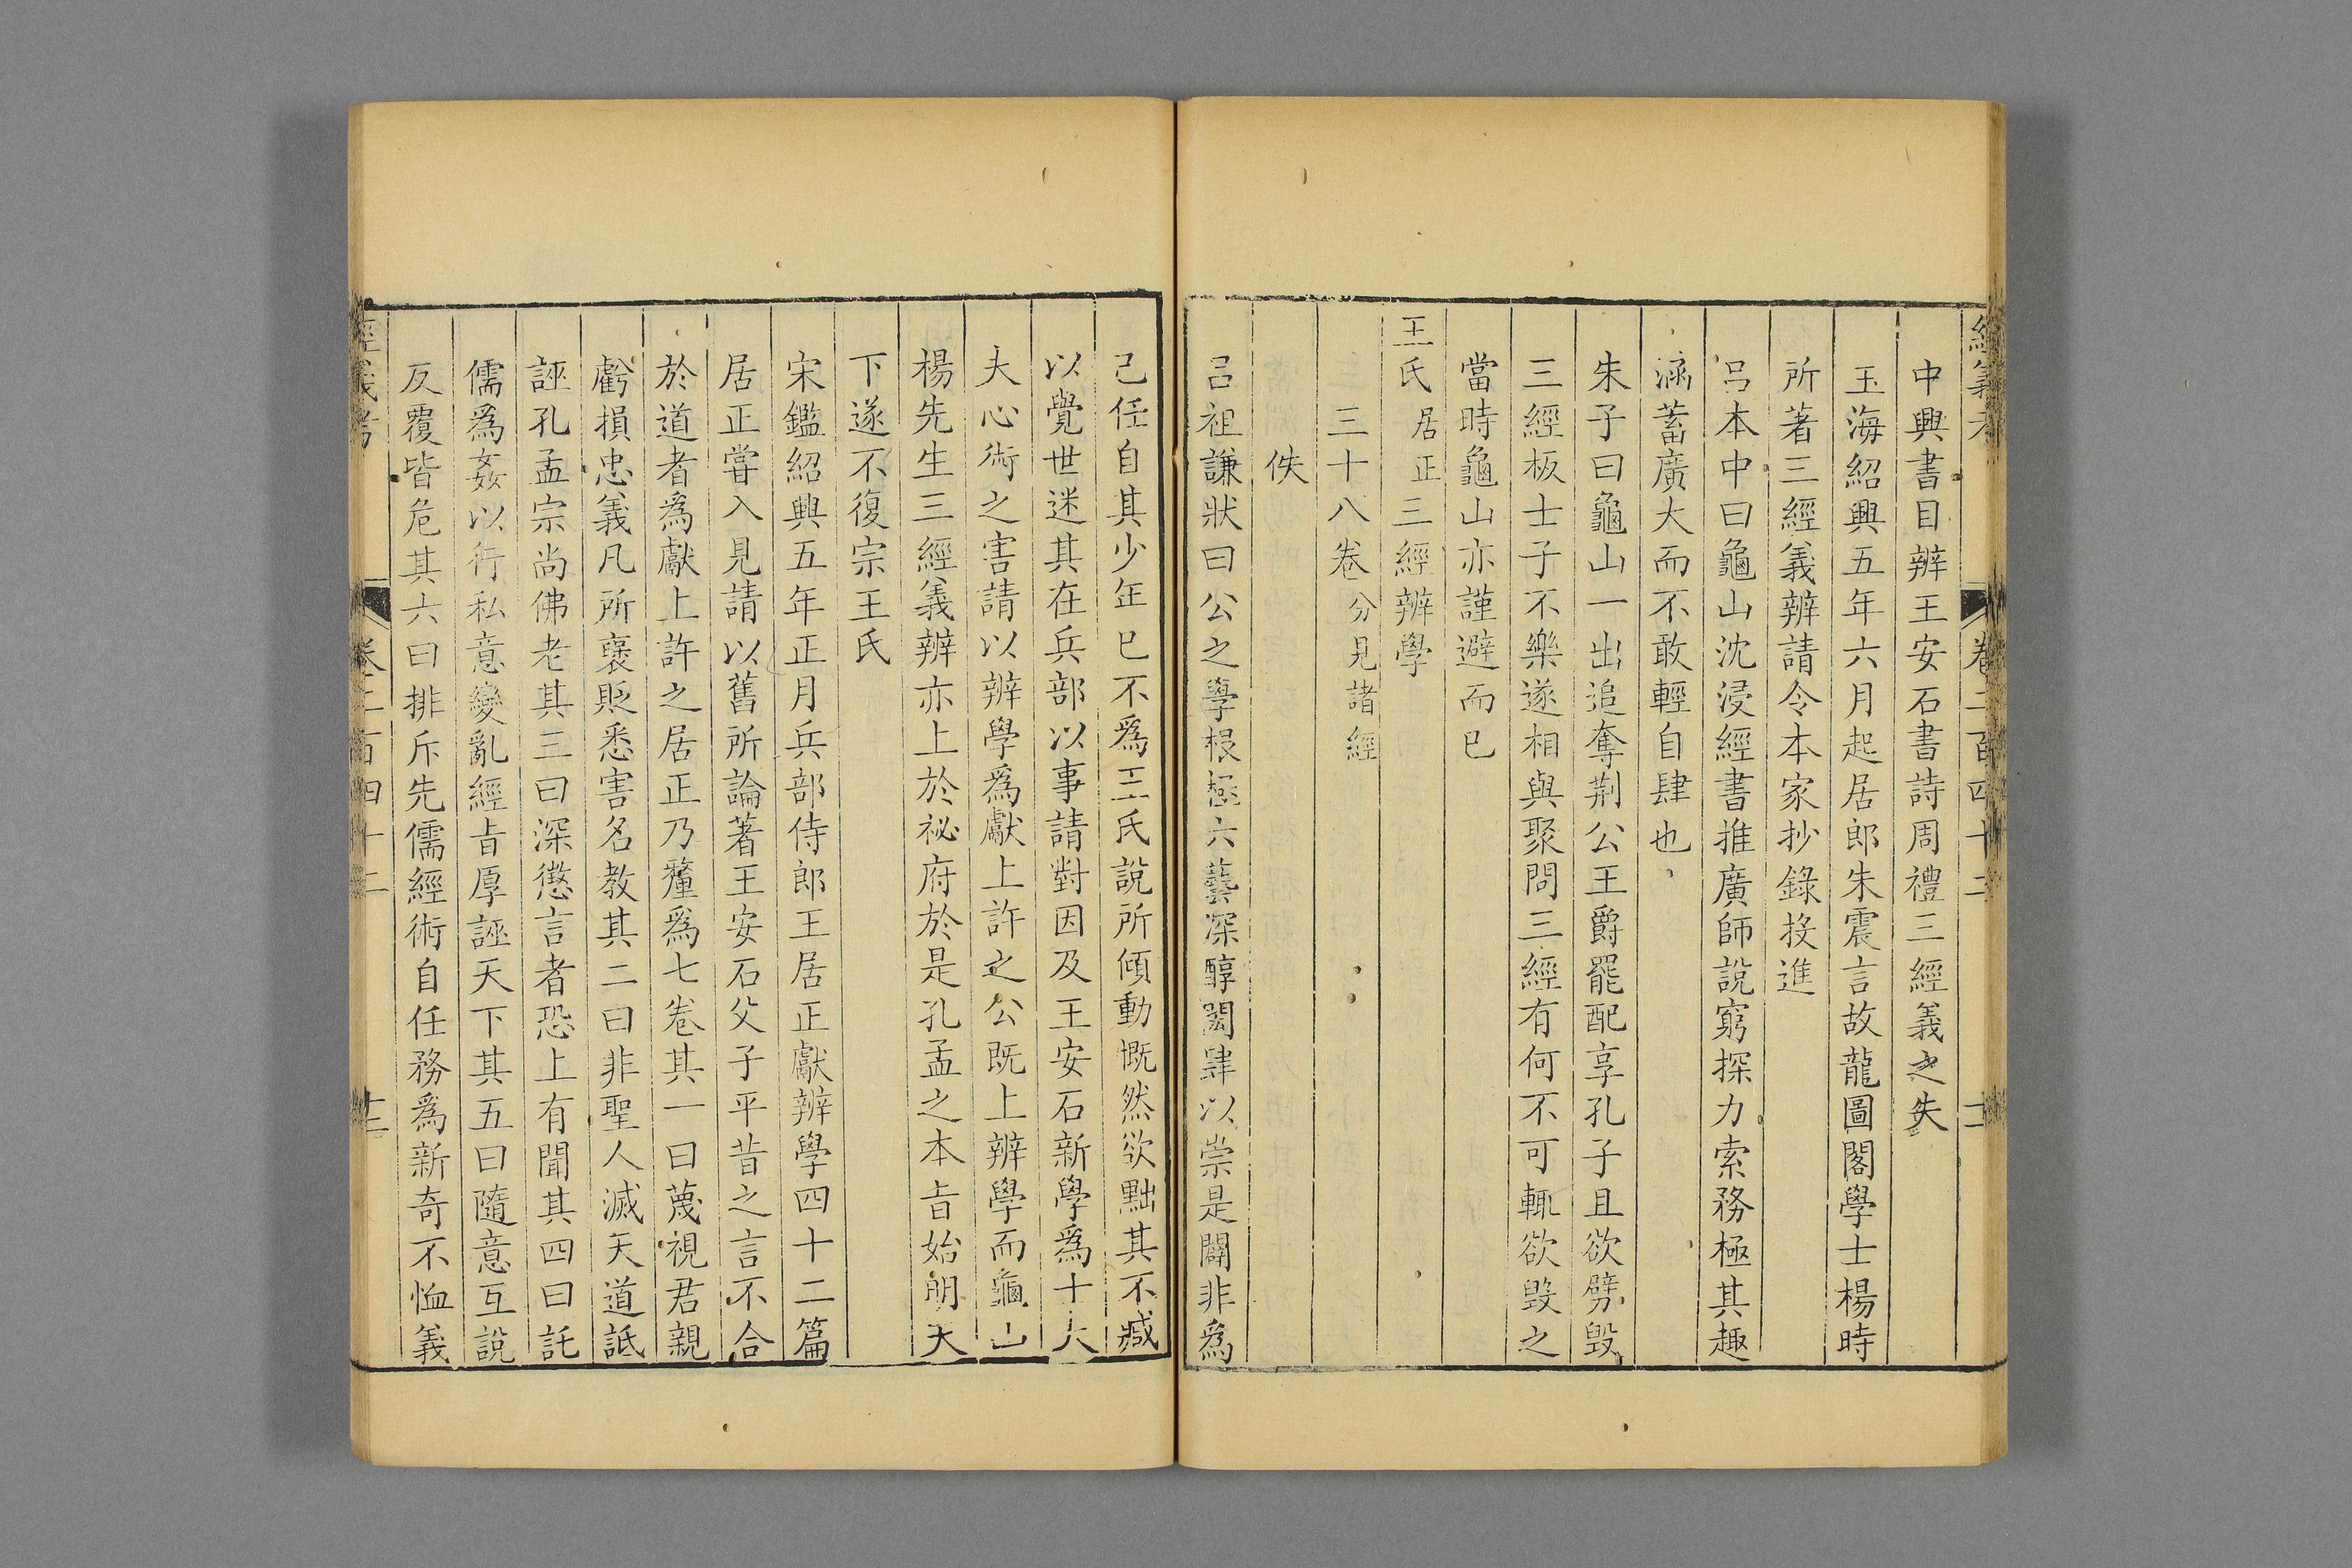 經義考 卷二百四十二 十一
中興書目辨王安石書詩周禮三經義之失
玉海紹興五年六月起居郎朱震言故龍圖閣學士楊時
所著三經義辨請令本家抄錄投進
呂本中曰龜山沈浸經書推廣師說窮探力索務極其趣
涵蓄廣大而不敢輕自肆也
朱子曰龜山一出追奪荆公王爵罷配享孔子且欲劈毀
三經板士子不樂遂相與聚問三經有何不可輒欲毀之
當時龜山亦謹避而已
王氏居正三經辨學
三十八卷分見諸經
佚
呂祖謙狀曰公之學根極六藝深醇閎肆以崇是闢非爲
己任自其少年已不爲王氏說所傾動慨然欲黜其不臧
以覺世迷其在兵部以事請對因及王安石新學爲士大
夫心術之害請以辨學爲獻上許之公既上辨學而龜山
楊先生三經義辨亦上於祕府於是孔孟之本㫖始朙天
下遂不復宗王氏
宋鑑紹興五年正月兵部侍郎王居正獻辨學四十二篇
居正嘗入見請以舊所論著王安石父子平昔之言不合
於道者爲獻上許之居正乃釐爲七卷其一曰蔑視君親
虧損忠義凡所襃貶悉害名教其二曰非聖人滅天道詆
誣孔孟宗尚佛老其三曰深懲言者恐上有聞其四曰託
儒爲姦以行私意變亂經㫖厚誣天下其五曰隨意互說
反覆皆危其六曰排斥先儒經術自任務爲新奇不恤義
經義考 卷二百四十二 十二